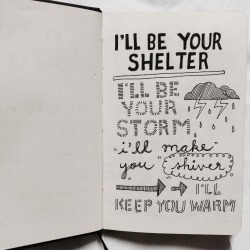 I'LL BE YOUR
SHELTER
I'LL BE
YOUR
STORM
"i'll make
you "shiver"
I'LL
KEEP YOU WARM